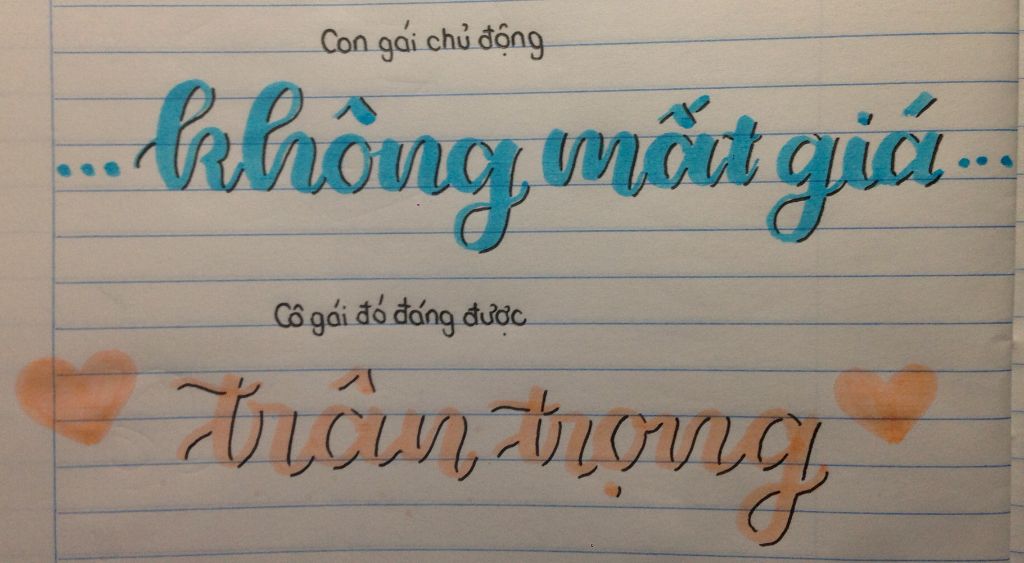 Con gái chủ động
...không mất giá...
Cô gái đó đáng được
trân trọng